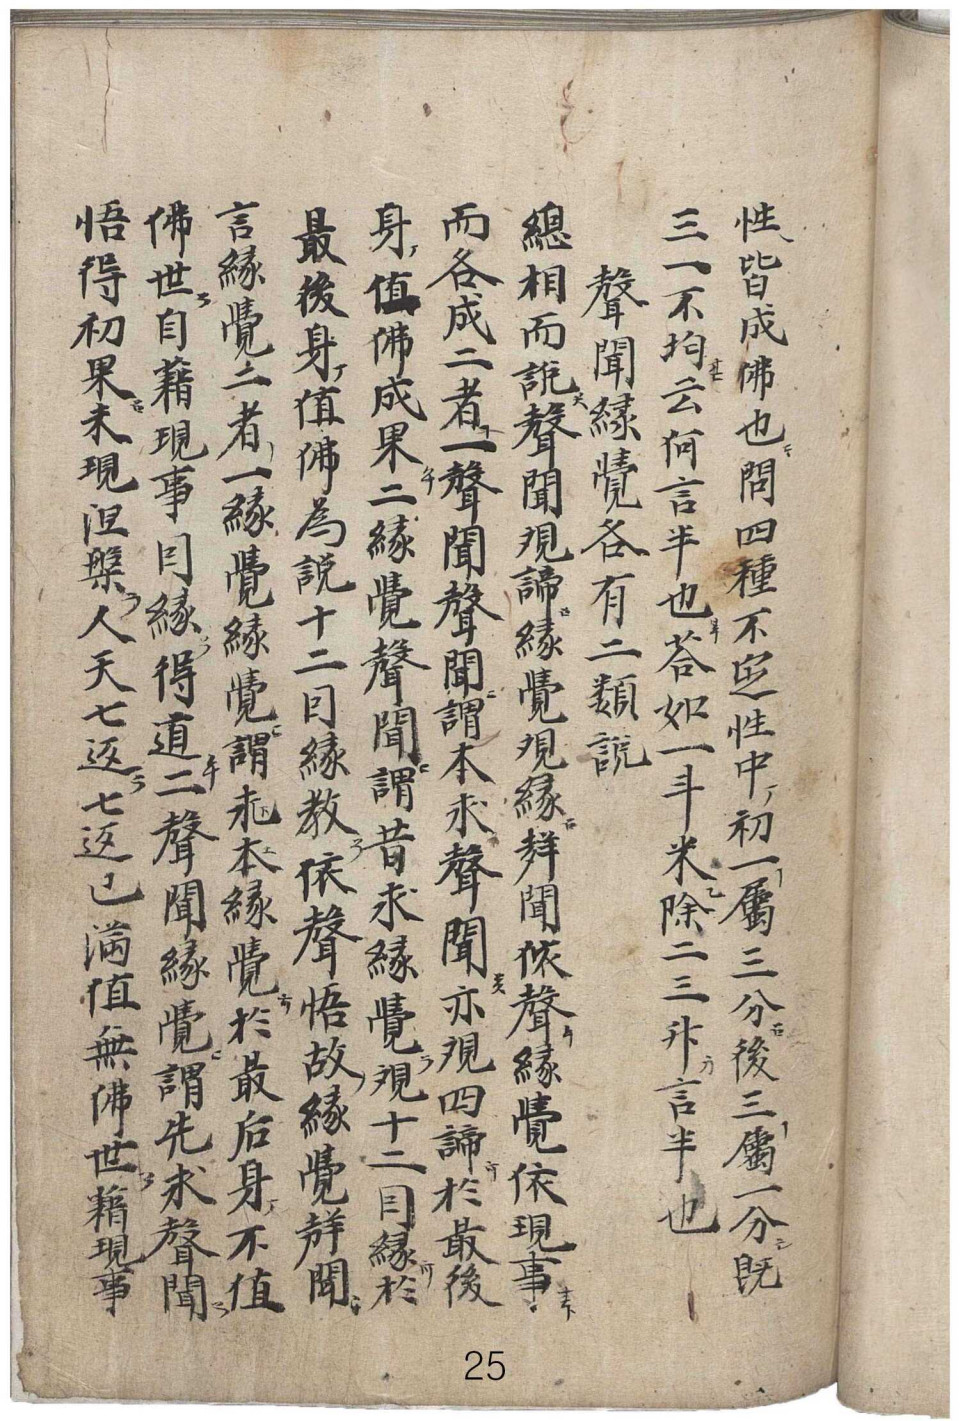 性皆成佛也問四種不定性中初一屬三分後三屬一分既
三一不均云何言半也荅如一斗米除二三升言半也
聲聞緣覺各有二類說
總相而說聲聞觀諦緣覺觀緣聲聞依聲緣覺依現事
而各成二者一聲聞聲聞謂本求聲聞亦觀四諦於最後
身值佛成果二緣覺聲聞謂昔求緣覺觀十二因緣於
最後身值佛為說十二因緣教依聲悟故緣覺聲聞
言緣覺二者一緣覺緣覺謂求本緣覺於最后身不值
佛世自藉現事因緣得道二聲聞緣覺謂先求聲聞
悟得初果未現涅槃人天七返七返已滿值無佛世藉現事
25